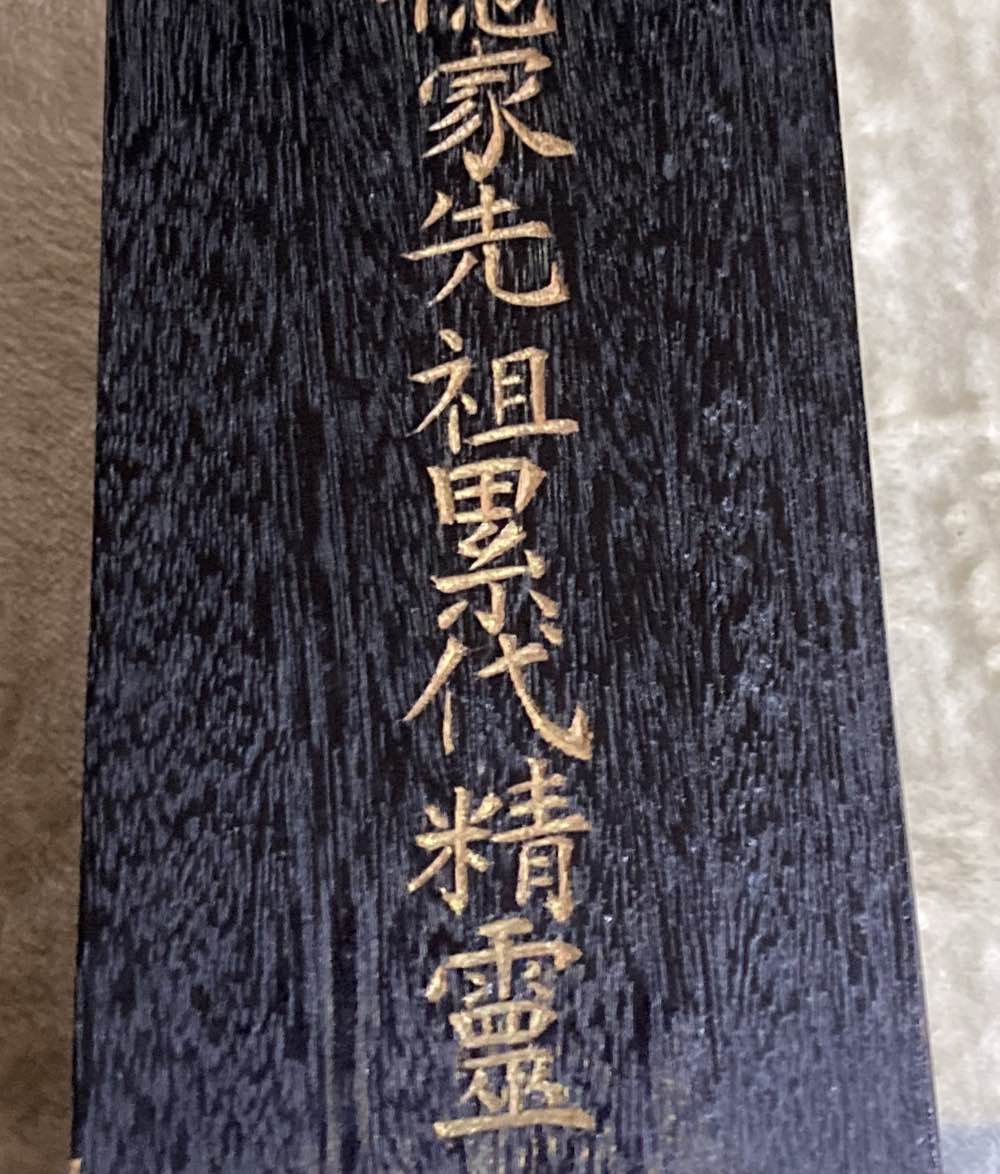 家先祖累代精靈